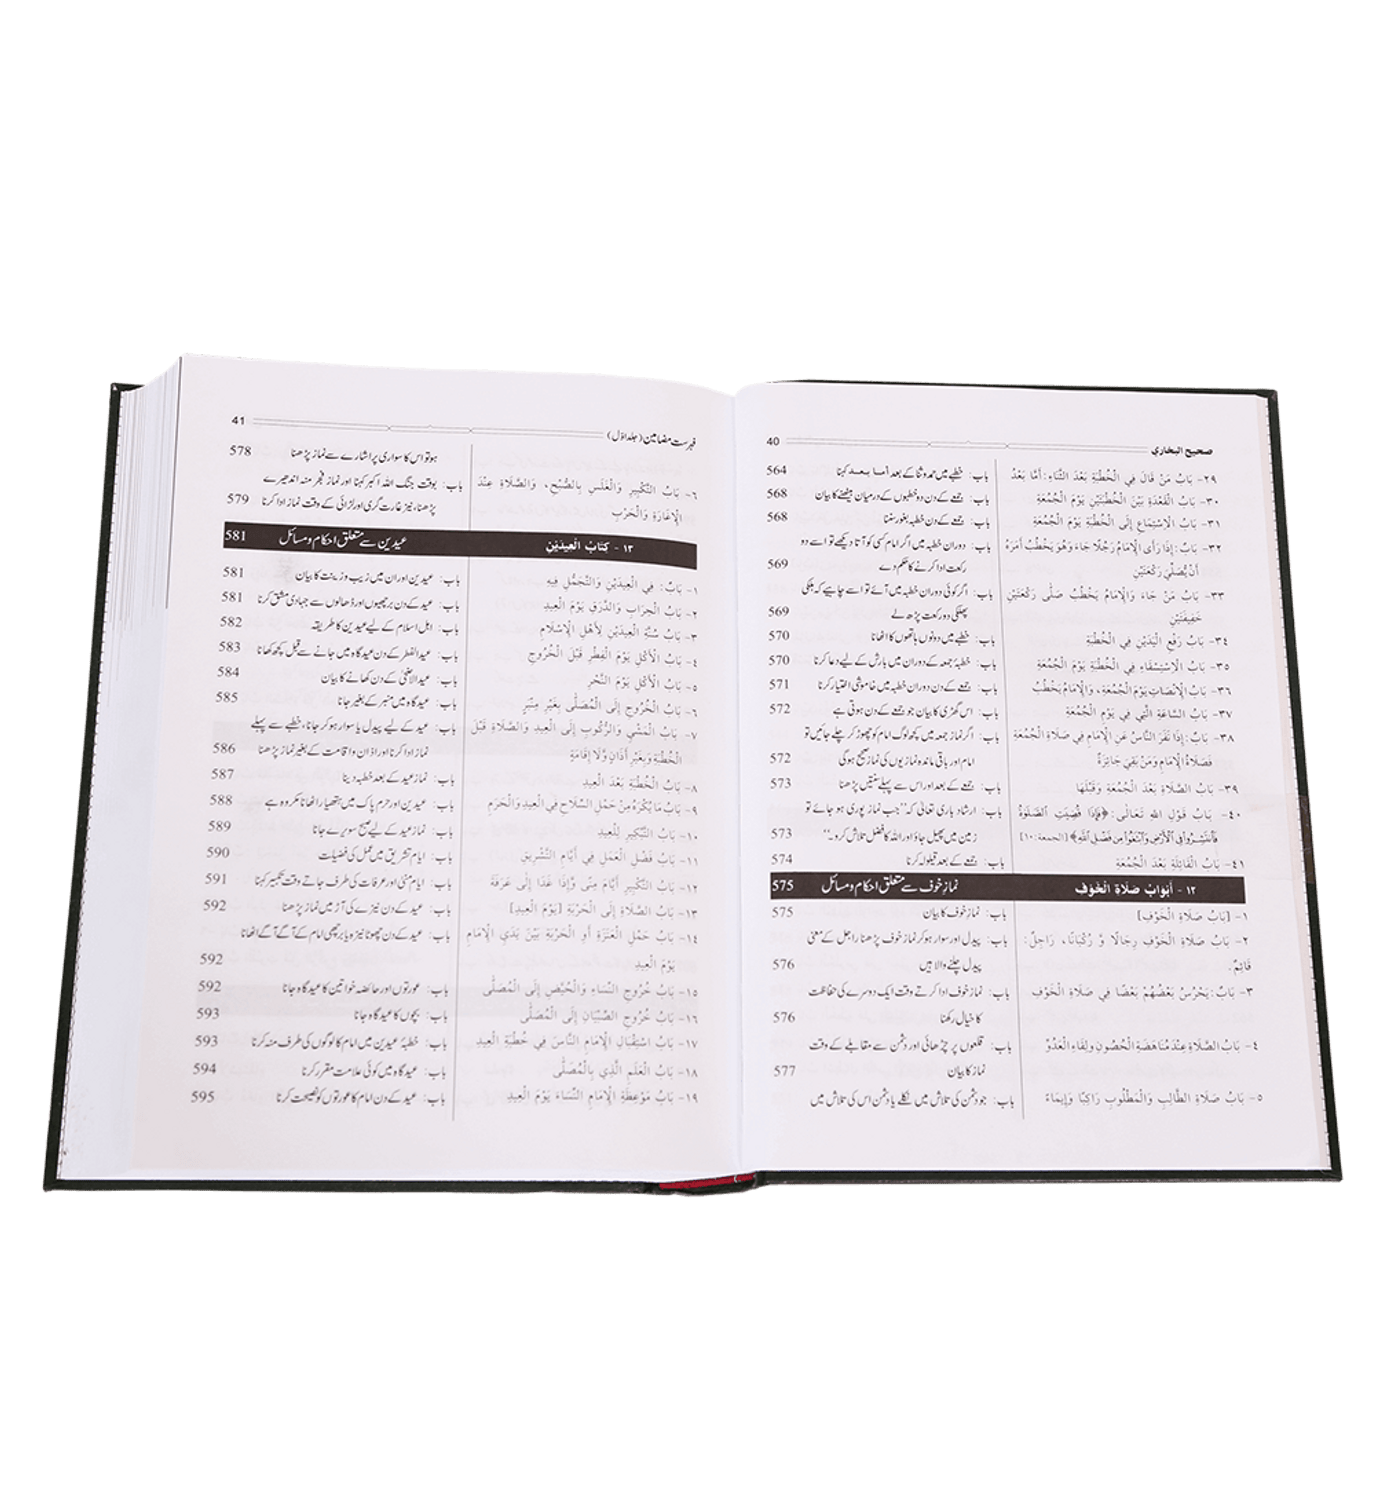 صحيح البخاري 40
٢٩- بَابُ مَنْ قَالَ فِي الْخُطْبَةِ بَعْدَ الثَّنَاءِ: أَمَّا بَعْدُ باب: خطبے میں حمد و ثنا کے بعد أما بعد کہنا 564
٣٠- بَابُ الْقَعْدَةِ بَيْنَ الْخُطْبَتَيْنِ يَوْمَ الْجُمُعَةِ باب: جمعے کے دن دو خطبوں کے درمیان بیٹھنے کا بیان 568
٣١- بَابُ الْاسْتِمَاعِ إِلَى الْخُطْبَةِ يَوْمَ الْجُمُعَةِ باب: جمعے کے دن خطبہ بغور سننا 568
٣٢- بَابٌ: إِذَا رَأَى الْإِمَامُ رَجُلًا جَاءَ وَهُوَ يَخْطُبُ أَمَرَهُ باب: دوران خطبہ میں اگر امام کسی کو آتا دیکھے تو اسے دو
أَنْ يُصَلِّيَ رَكْعَتَيْنِ رکعت ادا کرنے کا حکم دے 569
٣٣- بَابُ مَنْ جَاءَ وَالْإِمَامُ يَخْطُبُ صَلَّى رَكْعَتَيْنِ باب: اگر کوئی دوران خطبہ میں آئے تو اسے چاہیے کہ ہلکی
خَفِيفَتَيْنِ پھلکی دو رکعت پڑھ لے 569
٣٤- بَابُ رَفْعِ الْيَدَيْنِ فِي الْخُطْبَةِ باب: خطبے میں دونوں ہاتھوں کا اٹھانا 570
٣٥- بَابُ الْاسْتِسْقَاءِ فِي الْخُطْبَةِ يَوْمَ الْجُمُعَةِ باب: خطبۂ جمعہ کے دوران میں بارش کے لیے دعا کرنا 570
٣٦- بَابُ الْإِنْصَاتِ يَوْمَ الْجُمُعَةِ، وَالْإِمَامُ يَخْطُبُ باب: جمعے کے دن دوران خطبہ میں خاموشی اختیار کرنا 571
٣٧- بَابُ السَّاعَةِ الَّتِي فِي يَوْمِ الْجُمُعَةِ باب: اس گھڑی کا بیان جو جمعے کے دن ہوتی ہے 572
٣٨- بَابٌ: إِذَا نَفَرَ النَّاسُ عَنِ الْإِمَامِ فِي صَلَاةِ الْجُمُعَةِ باب: اگر نماز جمعہ میں کچھ لوگ امام کو چھوڑ کر چلے جائیں تو
فَصَلَاةُ الْإِمَامِ وَمَنْ بَقِيَ جَائِزَةٌ امام اور باقی ماندہ نمازیوں کی نماز صحیح ہوگی 572
٣٩- بَابُ الصَّلَاةِ بَعْدَ الْجُمُعَةِ وَقَبْلَهَا باب: جمعے کے بعد اور اس سے پہلے سنتیں پڑھنا 573
٤٠- بَابُ قَوْلِ اللهِ تَعَالَى: ﴿فَإِذَا قُضِيَتِ الصَّلَوٰةُ باب: ارشاد باری تعالیٰ کہ "جب نماز پوری ہو جائے تو
فَانتَشِرُوا فِي الْأَرْضِ وَابْتَغُوا مِن فَضْلِ اللَّهِ﴾ [الجمعة: ١٠] زمین میں پھیل جاؤ اور اللہ کا فضل تلاش کرو۔" 573
٤١- بَابُ الْقَائِلَةِ بَعْدَ الْجُمُعَةِ باب: جمعے کے بعد قیلولہ کرنا 574
١٢ - أَبْوَابُ صَلَاةِ الْخَوْفِ نماز خوف سے متعلق احکام و مسائل 575
١- [بَابُ صَلَاةِ الْخَوْفِ] باب: نماز خوف کا بیان 575
٢- بَابُ صَلَاةِ الْخَوْفِ رِجَالًا وَّ رُكْبَانًا، رَاجِلٌ: باب: پیدل اور سوار ہو کر نماز خوف پڑھنا راجل کے معنی
قَائِمٌ. پیدل چلنے والا ہیں 576
٣- بَابٌ: يَحْرُسُ بَعْضُهُمْ بَعْضًا فِي صَلَاةِ الْخَوْفِ باب: نماز خوف ادا کرتے وقت ایک دوسرے کی حفاظت
کا خیال رکھنا 576
٤- بَابُ الصَّلَاةِ عِنْدَ مُنَاهَضَةِ الْحُصُونِ وَلِقَاءِ الْعَدُوِّ باب: قلعوں پر چڑھائی اور دشمن سے مقابلے کے وقت
نماز کا بیان 577
٥- بَابُ صَلَاةِ الطَّالِبِ وَالْمَطْلُوبِ رَاكِبًا وَإِيمَاءً باب: جو دشمن کی تلاش میں نکلے یا دشمن اس کی تلاش میں
فہرست مضامین (جلد اول) 41
ہو تو اس کا سواری پر اشارے سے نماز پڑھنا 578
٦- بَابُ التَّكْبِيرِ وَالْغَلَسِ بِالصُّبْحِ، وَالصَّلَاةِ عِنْدَ باب: بوقت جنگ اللہ اکبر کہنا اور نماز فجر منہ اندھیرے
الْإِغَارَةِ وَالْحَرْبِ پڑھنا، نیز غارت گری اور لڑائی کے وقت نماز ادا کرنا 579
١٣ - كِتَابُ الْعِيدَيْنِ عیدین سے متعلق احکام و مسائل 581
١- بَابٌ: فِي الْعِيدَيْنِ وَالتَّجَمُّلِ فِيهِ باب: عیدین اور ان میں زیب و زینت کا بیان 581
٢- بَابُ الْحِرَابِ وَالدَّرَقِ يَوْمَ الْعِيدِ باب: عید کے دن برچھیوں اور ڈھالوں سے جہادی مشق کرنا 581
٣- بَابُ سُنَّةِ الْعِيدَيْنِ لِأَهْلِ الْإِسْلَامِ باب: اہل اسلام کے لیے عیدین کا طریقہ 582
٤- بَابُ الْأَكْلِ يَوْمَ الْفِطْرِ قَبْلَ الْخُرُوجِ باب: عید الفطر کے دن عید گاہ میں جانے سے قبل کچھ کھانا 583
٥- بَابُ الْأَكْلِ يَوْمَ النَّحْرِ باب: عید الاضحیٰ کے دن کھانے کا بیان 584
٦- بَابُ الْخُرُوجِ إِلَى الْمُصَلَّى بِغَيْرِ مِنْبَرٍ باب: عید گاہ میں منبر کے بغیر جانا 585
٧- بَابُ الْمَشْيِ وَالرُّكُوبِ إِلَى الْعِيدِ وَالصَّلَاةِ قَبْلَ باب: عید کے لیے پیدل یا سوار ہو کر جانا، خطبے سے پہلے
الْخُطْبَةِ وَبِغَيْرِ أَذَانٍ وَّلَا إِقَامَةٍ نماز ادا کرنا اور اذان و اقامت کے بغیر نماز پڑھنا 586
٨- بَابُ الْخُطْبَةِ بَعْدَ الْعِيدِ باب: نماز عید کے بعد خطبہ دینا 587
٩- بَابُ مَا يُكْرَهُ مِنْ حَمْلِ السِّلَاحِ فِي الْعِيدِ وَالْحَرَمِ باب: عیدین اور حرم پاک میں ہتھیار اٹھانا مکروہ ہے 588
١٠- بَابُ التَّبْكِيرِ لِلْعِيدِ باب: نماز عید کے لیے صبح سویرے جانا 589
١١- بَابُ فَضْلِ الْعَمَلِ فِي أَيَّامِ التَّشْرِيقِ باب: ایام تشریق میں عمل کی فضیلت 590
١٢- بَابُ التَّكْبِيرِ أَيَّامَ مِنًى وَّإِذَا غَدَا إِلَى عَرَفَةَ باب: ایام منیٰ اور عرفات کی طرف جاتے وقت تکبیر کہنا 591
١٣- بَابُ الصَّلَاةِ إِلَى الْحَرْبَةِ [يَوْمَ الْعِيدِ] باب: عید کے دن نیزے کی آڑ میں نماز پڑھنا 592
١٤- بَابُ حَمْلِ الْعَنَزَةِ أَوِ الْحَرْبَةِ بَيْنَ يَدَيِ الْإِمَامِ باب: عید کے دن چھوٹا نیزہ یا برچھی امام کے آگے آگے اٹھانا
يَوْمَ الْعِيدِ 592
١٥- بَابُ خُرُوجِ النِّسَاءِ وَالْحُيَّضِ إِلَى الْمُصَلَّى باب: عورتوں اور حائضہ خواتین کا عید گاہ جانا 592
١٦- بَابُ خُرُوجِ الصِّبْيَانِ إِلَى الْمُصَلَّى باب: بچوں کا عید گاہ جانا 593
١٧- بَابُ اسْتِقْبَالِ الْإِمَامِ النَّاسَ فِي خُطْبَةِ الْعِيدِ باب: خطبۂ عیدین میں امام کا لوگوں کی طرف منہ کرنا 593
١٨- بَابُ الْعَلَمِ الَّذِي بِالْمُصَلَّى باب: عید گاہ میں کوئی علامت مقرر کرنا 594
١٩- بَابُ مَوْعِظَةِ الْإِمَامِ النِّسَاءَ يَوْمَ الْعِيدِ باب: عید کے دن امام کا عورتوں کو نصیحت کرنا 595